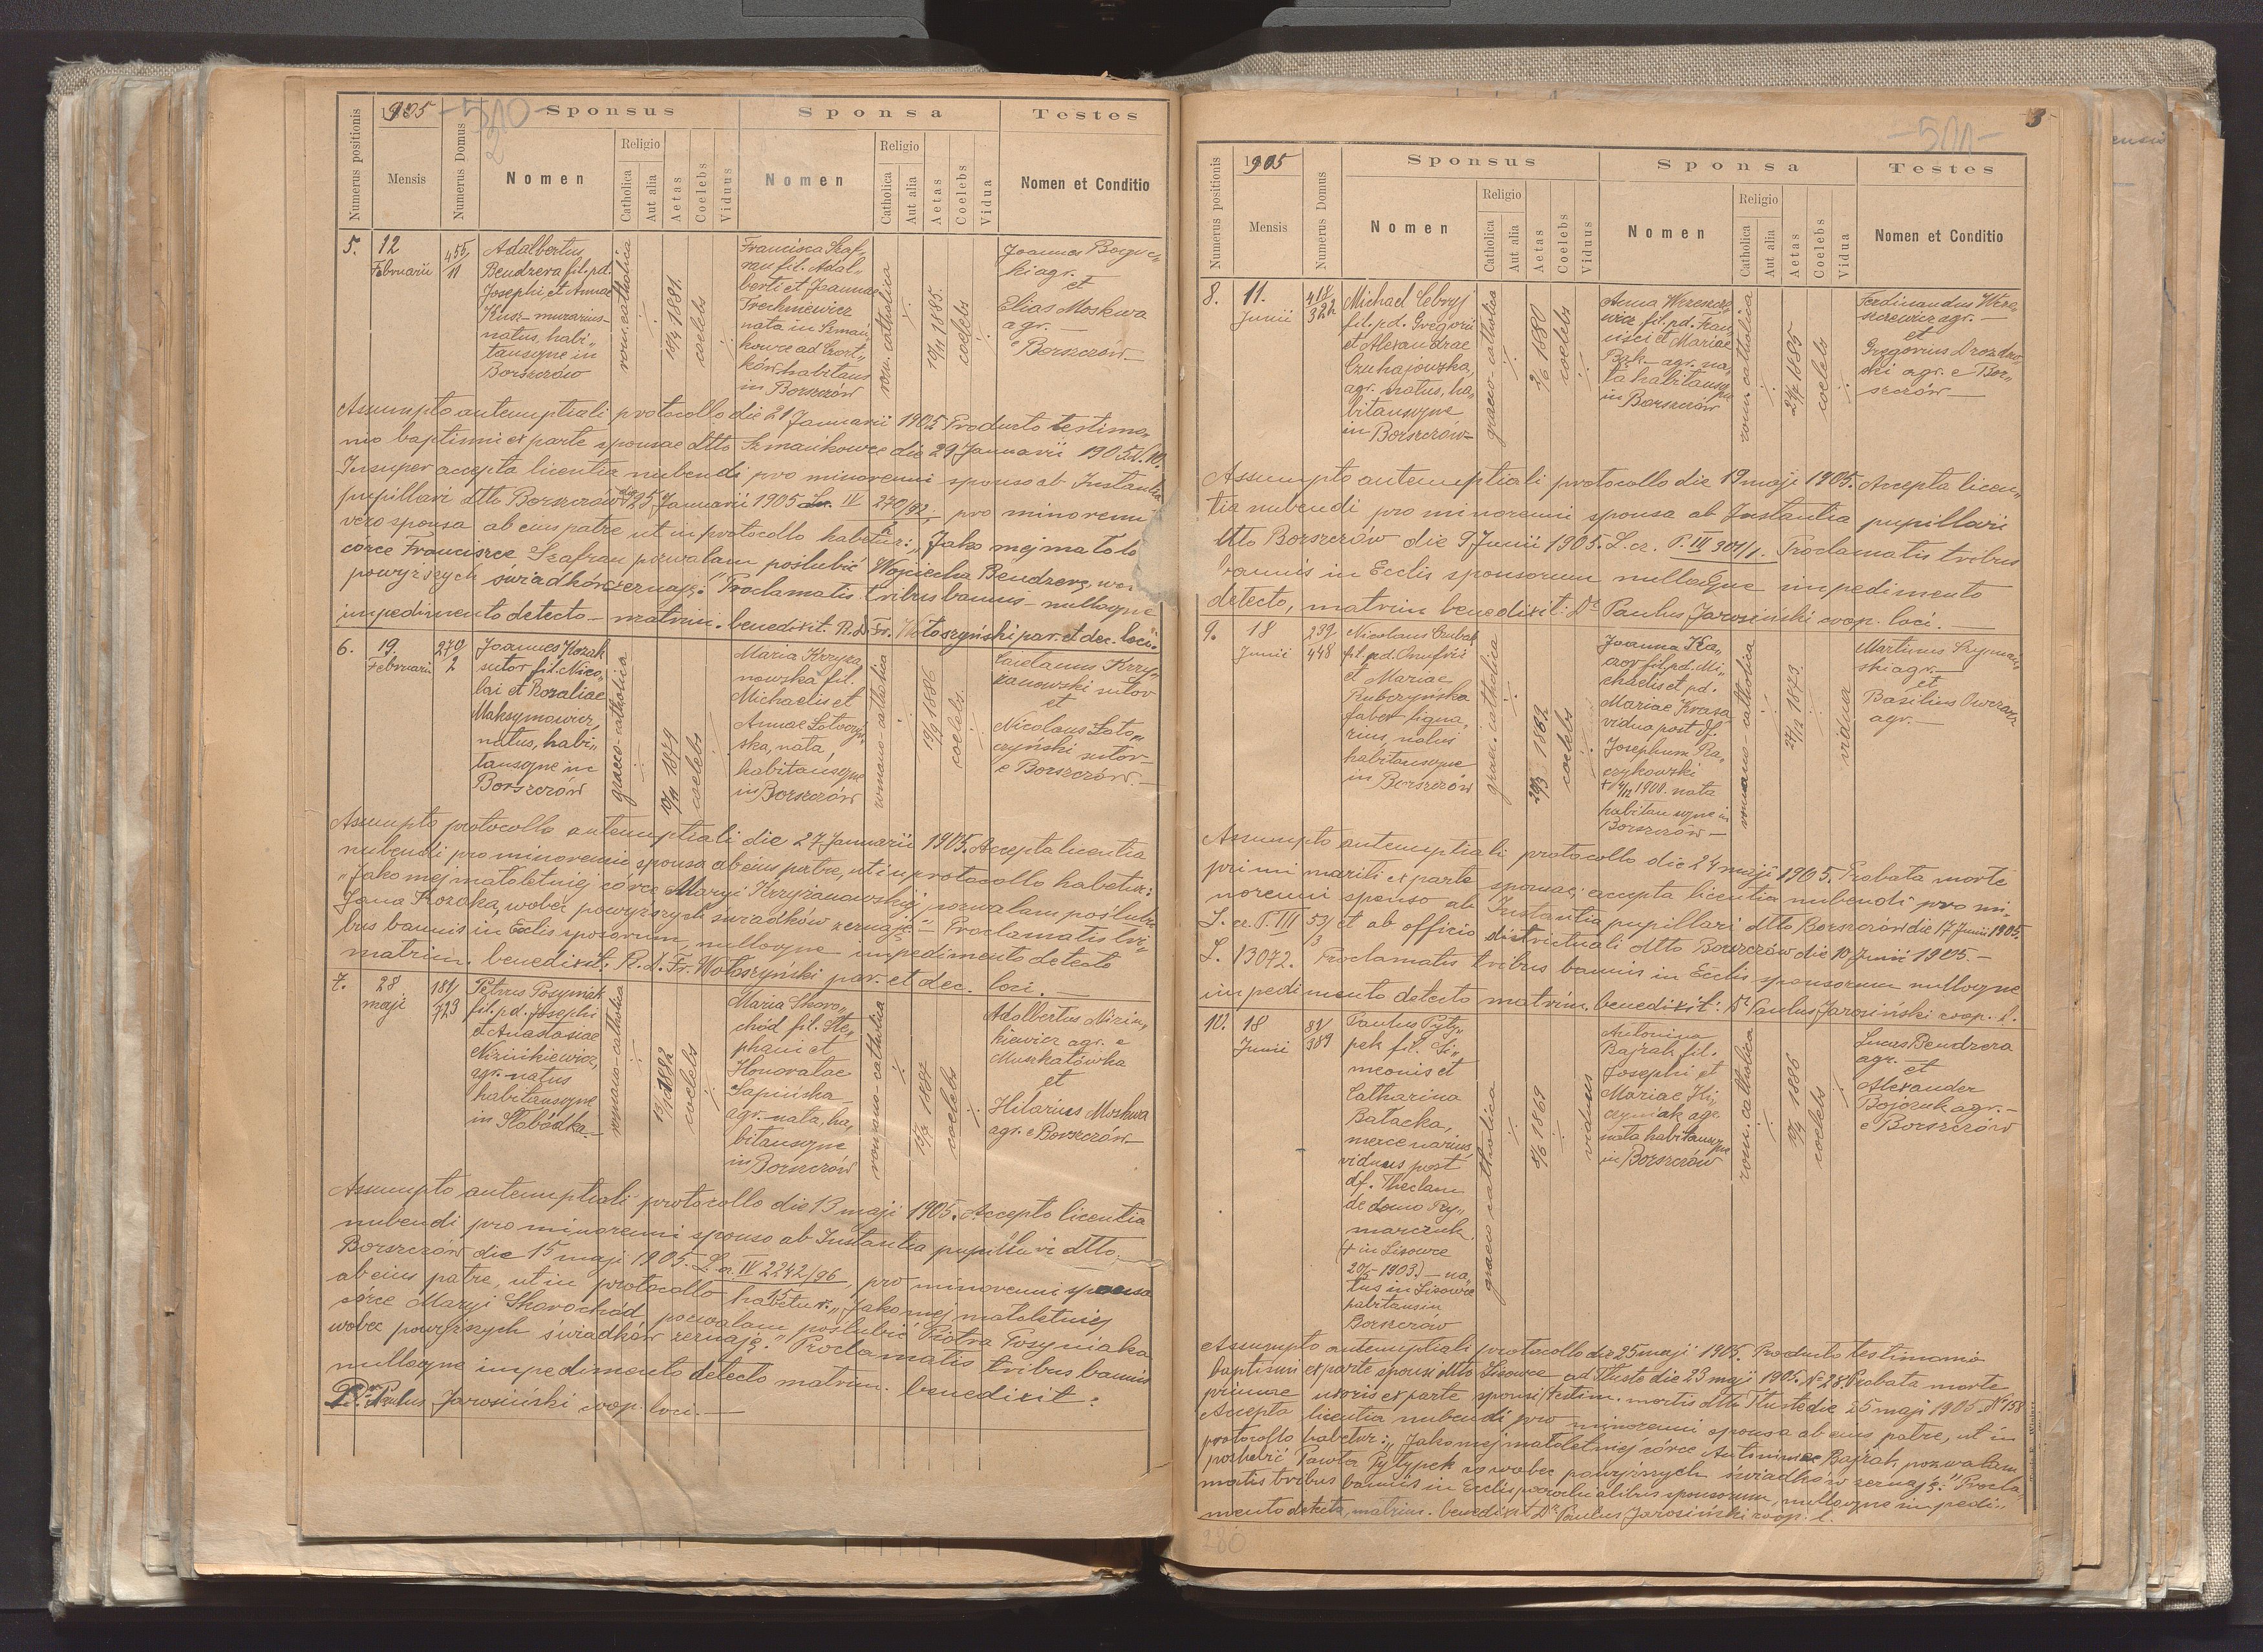 1905
-510-
2
Sponsus
Sponsa
Testes
Numerus positionis
Mensis
Numerus Domus
Nomen
Religio
Catholica
Aut alia
Aetas
Coelebs
Viduus
Nomen
Religio
Catholica
Aut alia
Aetas
Coelebs
Vidua
Nomen et Conditio
5.
12
Februarii
455/11
Adalbertus
Bendzera fil. pd.
Josephi, et Annae
Kusz - murarius -
natus, habi„
tansque in
Borszczów
rom. catholica
18/4 1881.
coelebs
Francisca Szaf„
ran fil. Adal„
berti et Joannae
Trechniewicz
nata in Szmań„
kowce ad Czort„
ków habitans
in Borszczów
rom. catholica
10/11 1885.
coelebs
Joannes Boguc„
ki agr.
et
Elias Moskwa
agr. —
e Borszczów —
Assumpto antenuptiali protocollo die 21 Januarii 1905. Producto testimo„
nio baptismi ex parte sponsae dtto Szmańkowce die 29 Januarii 1905.
Insuper accepta licentia nubendi pro minorenni sponso ab Instantia
pupillari dtto Borszczów die 25 Januarii 1905 IV 270/92, pro minorenni
vero sponsa ab eius patre ut in protocollo habetur: „Jako mej mało
córce Franciszce Szafran pozwalam poślubić Wojciecha Bendzerę, wo
powyższych świadków zeznaję." Proclamatis tribus bannis - nulloque
impedimento detecto - matrim. benedixit. R. D. Fr. Wołoszyński par. et dec. loci.
6.
19.
Februarii
270/2
Joannes Kozak
sutor fil. Nico„
lai et Rozaliae
Maksymowicz,
natus, habi„
tansque in
Borszczów
graeco-catholica
10/11 1879
coelebs
Maria Krzyża„
nowska fil.
Michaelis et
Annae
ska, nata,
habitansque
in Borszczów
romano-catholica
12/9 1886
coelebs.
Caietanus Krzy„
żanowski sutor
et
Nicolaus
czyński sutor
e Borszczów. —
Assumpto protocollo antenuptiali die 27 Januarii 1905. Accepta licentia
nubendi pro minorenni sponsa ab eius patre, ut in protocollo habetur:
„Jako mej małoletniej córce Maryi Krzyżanowskiej pozwalam poślubić
Jana Kozaka, wobec powyższych świadków zeznaję" — Proclamatis tri„
bus bannis in Ecclis sponsorum, nulloque impedimento detecto
matrim. benedixit: R. D. Fr. Wołoszyński par. et dec. loci. —
7.
28
maji
181/723
Petrus Posyniak
fil. pd. Josephi
et Anastasiae
Nizińkiewicz,
agr. natus
habitansque
in Słobódka. —
romano-catholica
1882
coelebs
Maria Skoro„
chód fil. Ste„
phani et
Honoratae
Łapińska —
agr. nata, ha„
bitansque
in Borszczów
romano-catholica
1887
coelebs
Adalbertus Niziń„
kiewicz agr. e
Muszkatówka
et
Hilarius Moskwa
agr. e Borszczów
Assumpto antenuptiali protocollo die 13 maji 1905. Accepto licentia
nubendi pro minorenni sponso ab Instantia pupillari dtto
Borszczów die 15 maji 1905. L. cz. IV 2242/96, pro minorenni sponsa
15
ab eius patre, ut in protocollo habetur: „Jako mej małoletniej
córce Maryi Skorochód pozwalam poślubić Piotra Posyniaka
wobec powyższych świadków zeznaję." Proclamatis tribus bannis
nulloque impedimento detecto matrim. benedixit:
Dr. Paulus Jarosiński coop. loci. —
-511-
3
1905
Sponsus
Sponsa
Testes
Numerus positionis
Mensis
Numerus Domus
Nomen
Religio
Catholica
Aut alia
Aetas
Coelebs
Viduus
Nomen
Religio
Catholica
Aut alia
Aetas
Coelebs
Vidua
Nomen et Conditio
8.
11.
Junii
Michael Cebryj
fil. pd. Gregorii
et Alexandrae
Czuhajowska,
agr. natus, ha„
bitansque
in Borszczów —
graeco-catholica
2/6 1880
coelebs
Anna Wereszcze„
wicz fil. pd. Fran„
cisci et Mariae
Bąk — agr. na„
ta habitansque
in Borszczów
rom. catholica
1885
coelebs
Ferdinandus Were„
szczewicz agr. —
et
Gregorius Drozdow„
ski agr. e Bor„
szczów —
Assumpto antenuptiali protocollo die 19 maji 1905. Accepta licen„
tia nubendi pro minorenni sponsa ab Instantia pupillari
dtto Borszczów die 9 Junii 1905. L. cz. P. III 301/1. Proclamatis tribus
bannis in Ecclis sponsorum nulloque impedimento
detecto, matrim benedixit: Dr Paulus Jarosiński coop. loci. —
9.
18
Junii
239
448
Nicolaus Czubak
fil. pd. Onufrii
et Mariae
Rubczyńska
faber ligna„
rius, natus
habitansque
in Borszczów
graec. catholica
coelebs
Joanna
fil. pd. Mi„
chaelis et pd.
Mariae Krasa
vidua post df.
Josephum Ra„
czykowski
1900. nata
habitansque in
Borszczów —
romano-catholica
27/12 1873.
vidua
Martinus Szymań„
ski agr. —
et
Basilius Owczarz
agr. —
Assumpto antenuptiali protocollo die 24 maji 1905. Probata morte
primi mariti ex parte sponsae; accepta licentia nubendi pro mi„
norenni sponso ab Instantia pupillari dtto Borszczów die 17 Junii 1905.
L. cz. P. III 53/3 et ab officio districtuali dtto Borszczów die 10 Junii 1905. —
L. 13072. Proclamatis tribus bannis in Ecclis sponsorum nulloque
impedimento detecto matrim. benedixit: Dr Paulus Jarosiński coop. l.
10.
18
Junii
81/389
Paulus Pyty„
pek fil. Si„
meonis et
Catharina
Batacka,
mercenarius,
viduus post
df. Theclam
de domo Ry„
marczuk.
(+ in Lisowce
20/5 1903.) — na„
tus in Lisowce
habitans in
Borszczów
graeco catholica
1869
viduus
Antonina
Bajrak fil.
Josephi et
Mariae
agr.
nata habitansque
in Borszczów
rom. catholica
1886
coelebs
Lucas Bendzera
agr. —
et
Alexander
Bojczuk agr. —
e Borszczów
Assumpto antenuptiali protocollo die 25 maji 1905. Producto testimonio
baptismi ex parte sponsi dtto Lisowce ad Tłuste die 23 maji 1905. № 28. Probata morte
primae uxoris ex parte sponsi (testim. mortis dtto Tłuste die 25 maji 1905. № 158
Accepta licentia nubendi pro minorenni sponsa ab eius patre, ut in
protocollo habetur: „Jako mej małoletniej córce Antoninie Bajrak, pozwalam
poślubić Pawła Pytypek co wobec powyższych świadków zeznaję." Procla„
matis tribus bannis in Ecclis parochialibus sponsorum, nulloque impedi„
mento detecto, matrim. benedixit Dr. Paulus Jarosiński coop. l.
280